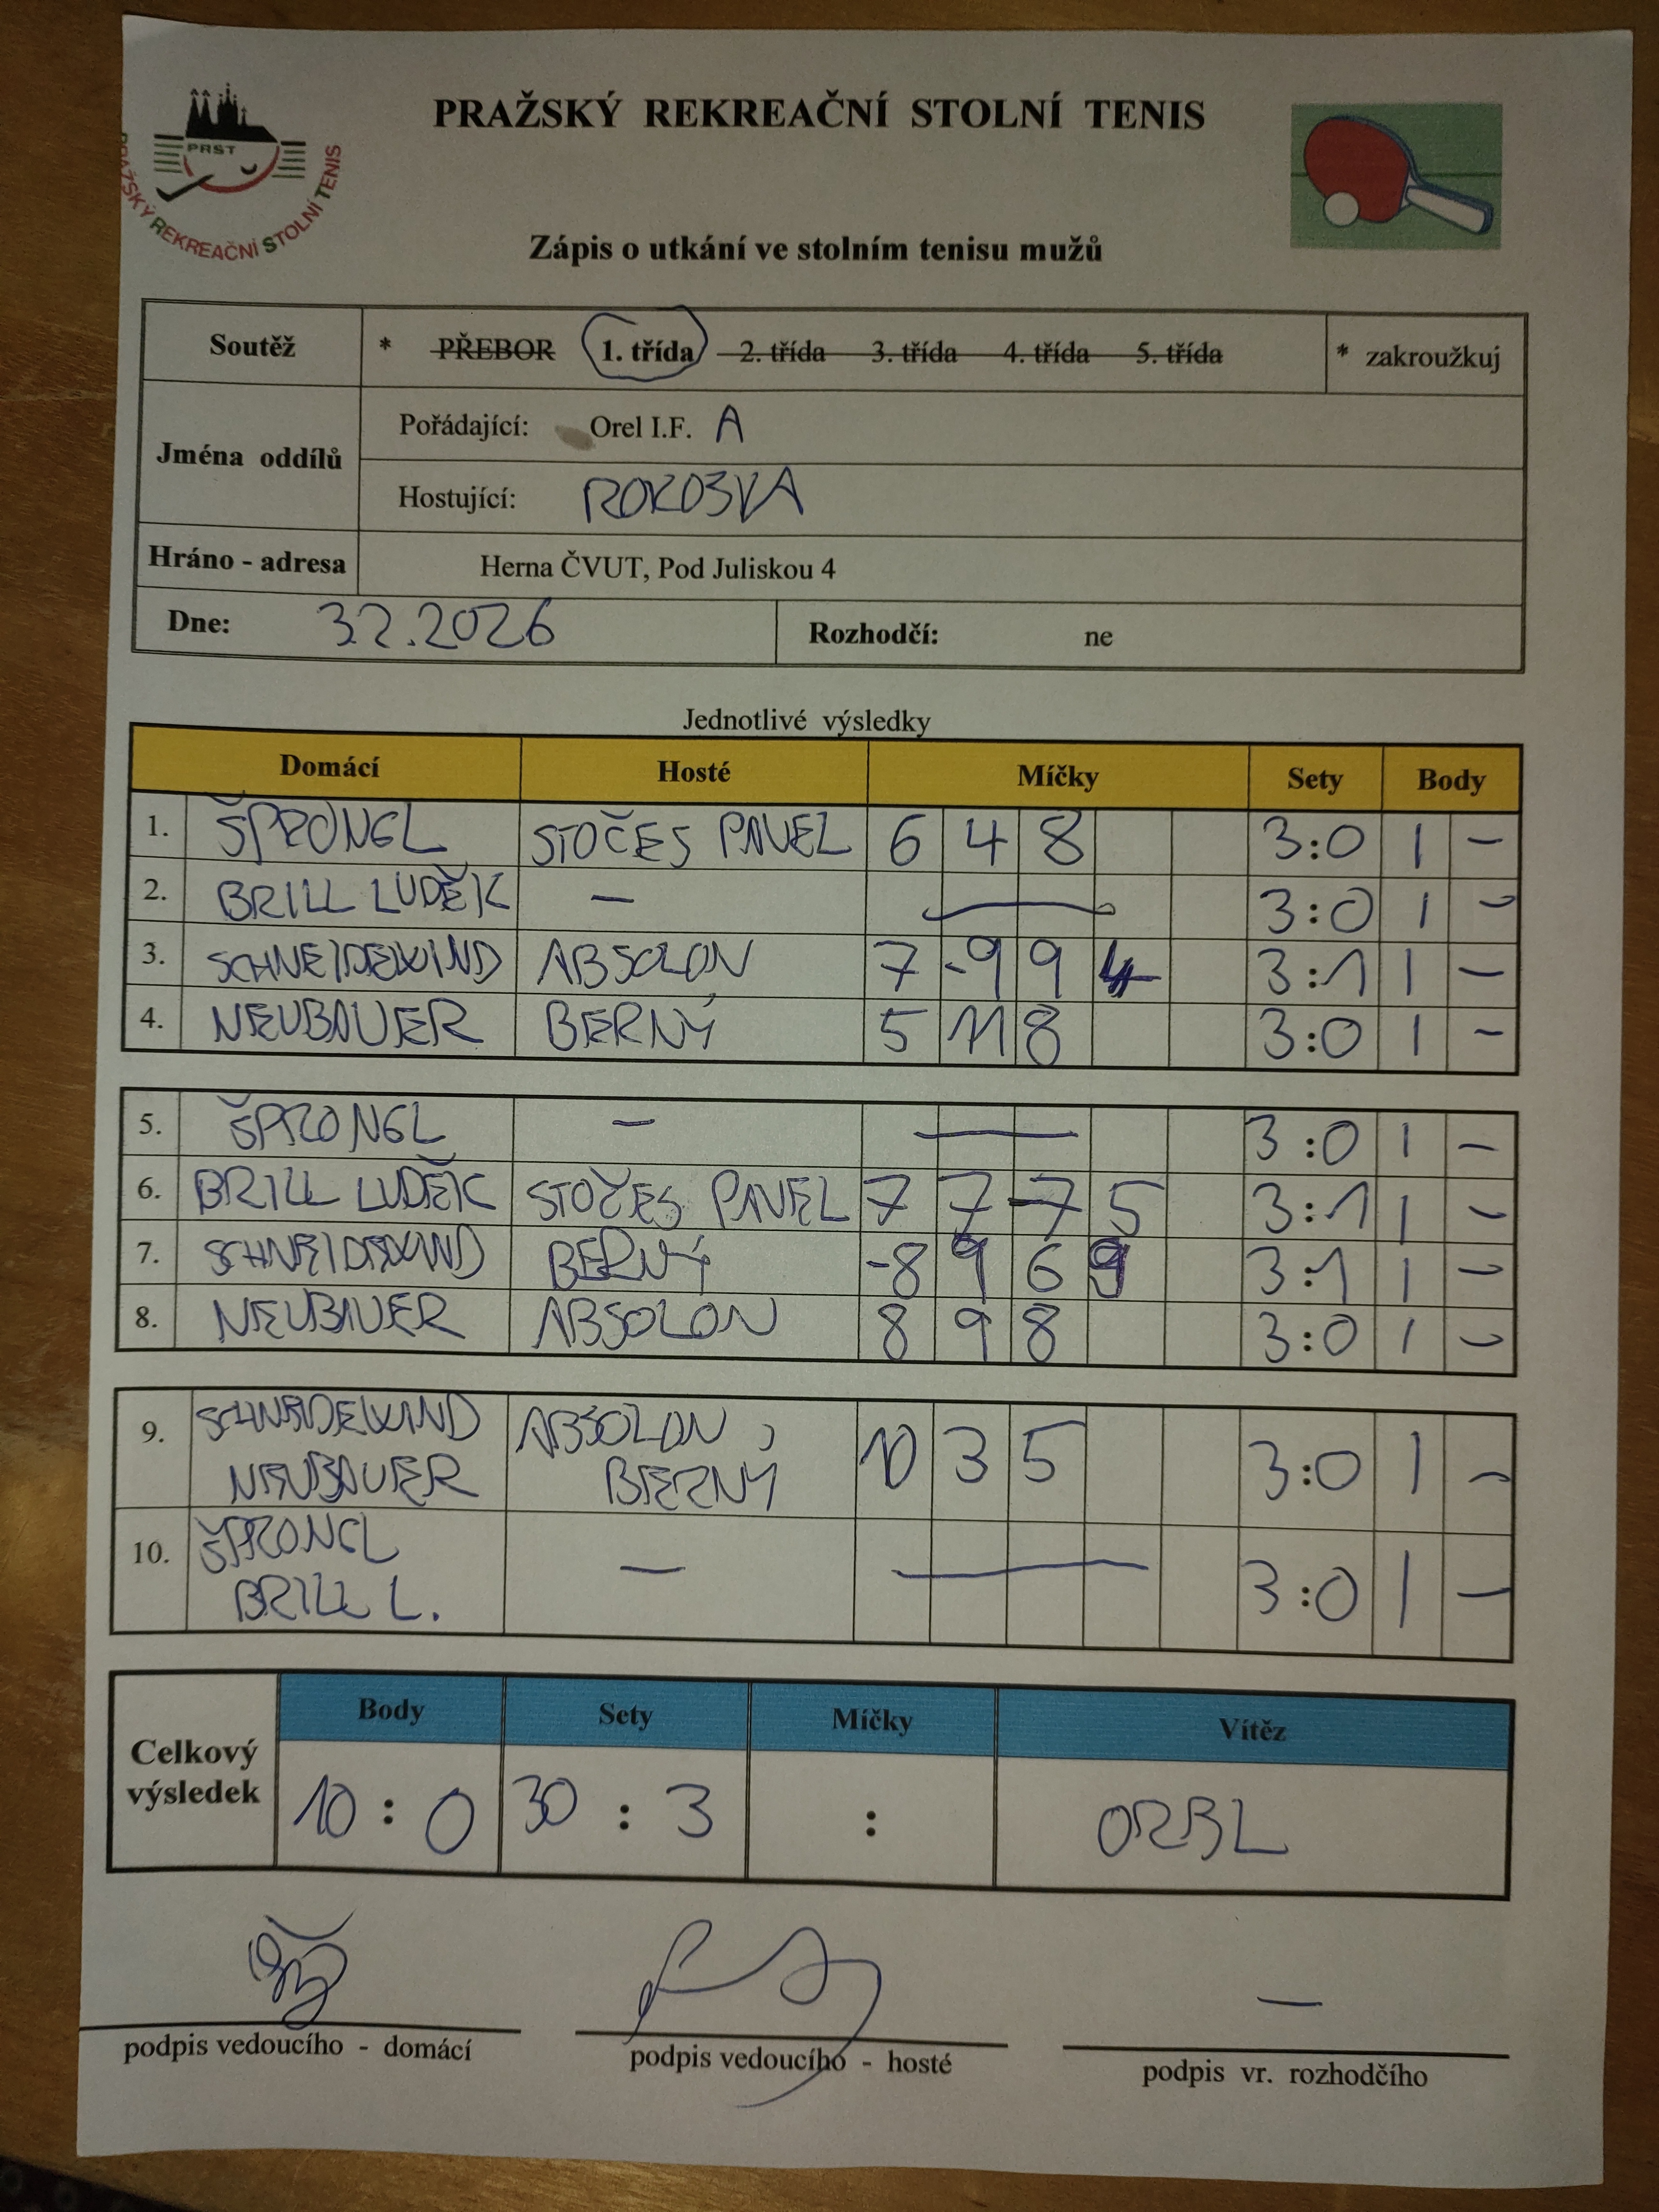 PRAŽSKÝ REKREAČNÍ STOLNÍ TENIS
PRST
PRAŽSKÝ REKREAČNÍ STOLNÍ TENIS
Zápis o utkání ve stolním tenisu mužů
Soutěž * PŘEBOR 1. třída 2. třída 3. třída 4. třída 5. třída * zakroužkuj
Jména oddílů
Pořádající: Orel I.F. A
Hostující: ROKOSKA
Hráno - adresa Herna ČVUT, Pod Juliskou 4
Dne: 3.2.2026 Rozhodčí: ne
Jednotlivé výsledky
Domácí Hosté Míčky Sety Body
1. ŠPRONGL STOČES PAVEL 6 4 8 3:0 1 -
2. BRILL LUDĚK - — 3:0 1 -
3. SCHNEIDEWIND ABSOLON 7 -9 9 4 3:1 1 -
4. NEUBAUER BERNÝ 5 11 8 3:0 1 -
5. ŠPRONGL - — 3:0 1 -
6. BRILL LUDĚK STOČES PAVEL 7 7 -7 5 3:1 1 -
7. SCHNEIDEWIND BERNÝ -8 9 6 9 3:1 1 -
8. NEUBAUER ABSOLON 8 9 8 3:0 1 -
9. SCHNEIDEWIND ABSOLON, 10 3 5 3:0 1 -
NEUBAUER BERNÝ
10. ŠPRONGL - — 3:0 1 -
BRILL L.
Celkový výsledek
Body Sety Míčky Vítěz
10 : 0 30 : 3 : OREL
—
podpis vedoucího - domácí podpis vedoucího - hosté podpis vr. rozhodčího